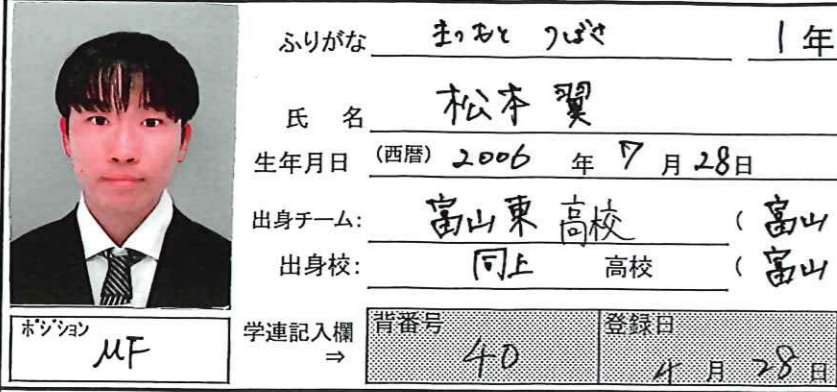 ふりがな まつもと つばさ 1年
氏 名 松本 翼
生年月日 (西暦) 2006 年 7 月 28日
出身チーム: 富山東 高校 ( 富山
出身校: 同上 高校 ( 富山
ポジション MF
学連記入欄 ⇒
背番号 40
登録日 4 月 28 日